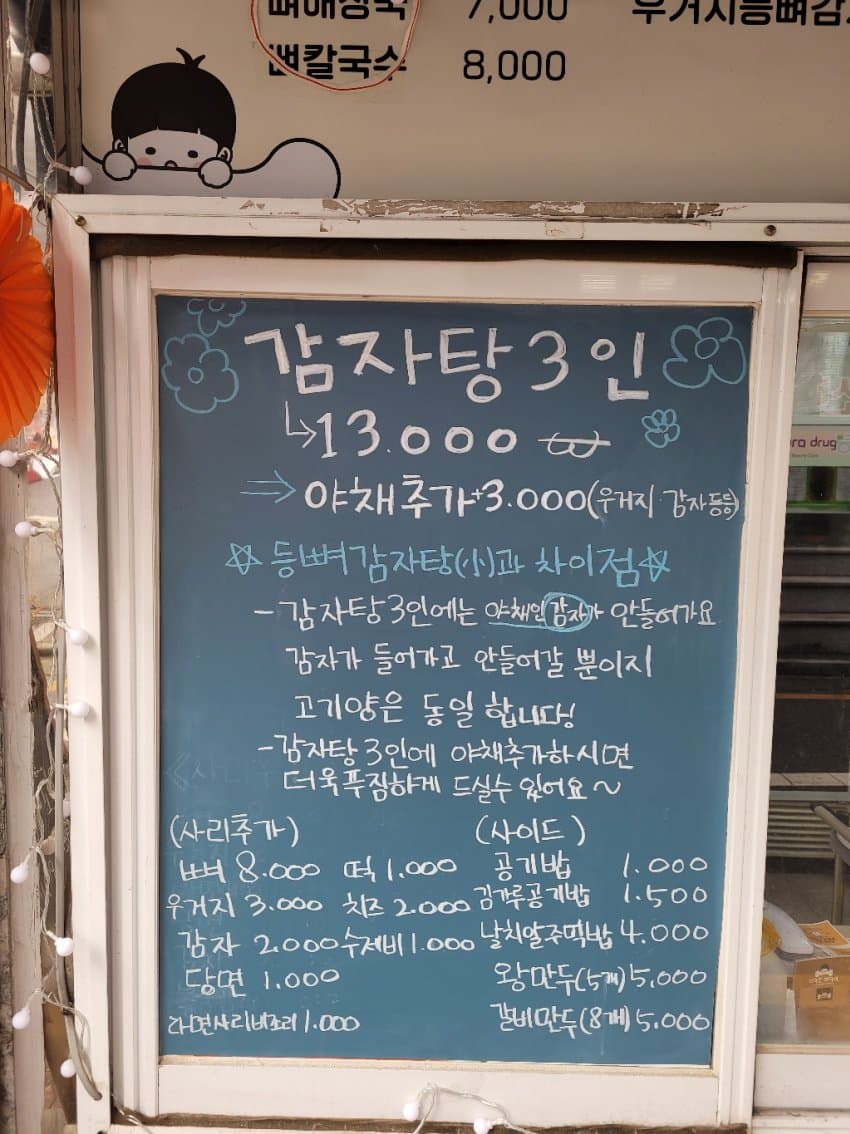 뼈해장국 7,000 우거지등뼈감
뼈칼국수 8,000
감자탕 3인
↳13.000 ₩
⇒ 야채추가+3.000(우거지·감자등등)
☆ 등뼈감자탕(小)과 차이점☆
- 감자탕3인에는 야채인 감자가 안들어가요
감자가 들어가고 안들어갈 뿐이지
고기양은 동일 합니다!
- 감자탕 3인에 야채추가하시면
더욱푸짐하게 드실수 있어요~
(사리추가) (사이드)
뼈 8.000 떡 1.000 공기밥 1.000
우거지 3.000 치즈 2.000 김가루공기밥 1.500
감자 2.000 수제비 1.000 날치알주먹밥 4.000
당면 1.000 왕만두(5개) 5.000
라면사리 1.000 갈비만두(8개) 5.000
drug